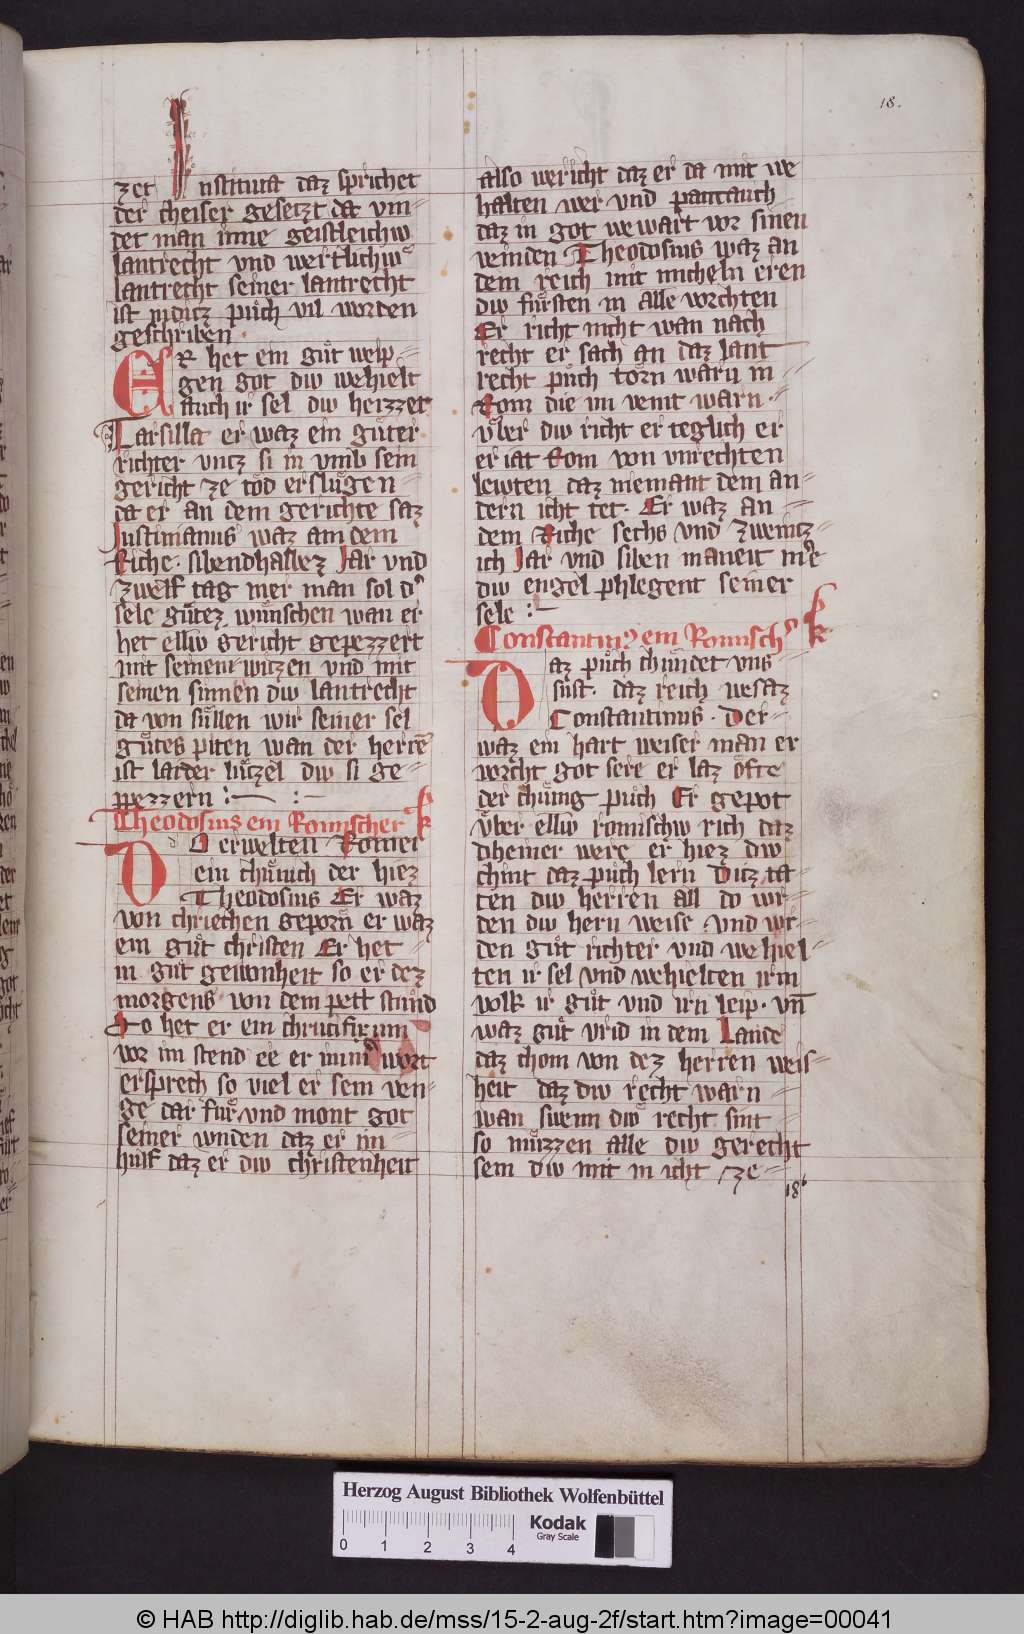 18.
zet Institura daz sprichet
der cheiser gesetzt da vin
det man inne geistleichiv
lantrecht vnd wertlichiv
lantrecht seiner lantrecht
ist inditz půch vil worden
geschriben
Er het ein gůt weip
gen got div wehielt
auch ir sel div hiezzet
Tarsilla er waz ein gůter
richter vntz si in vmb sein
gericht ze tod erslůgen
da er an dem gerichte saz
Justinianus waz am dem
Riche sibendhalbez Jar vnd
zwelf tag mer man sol d͛
sele gůtez wünschen wan er
het elliv gericht gepezzert
mit seinem witzen vnd mit
seinen sinnen div lantrecht
da von süllen wir seiner sel
gůtes piten wan der herrē
ist laider lützel div si ge
pezzern
Theodosius ein Romischer k
Do erwelten Romer
ein chünich der hiez
Theodosius Er waz
von chriechen geporn er waz
ein gůt christen Er het
in gůt gewonheit so er dez
morgens von dem pett stůnd
So het er ein chrucifixum
vor im stend ee er inind͛ wort
ersprech so viel er sein ven
ge dar für vnd mont got
seiner wnden daz er im
hulf daz er div christenheit
also wericht daz er da mit we
halten wer vnd patt auch
daz in got wewart vor sinen
veinden Theodosius waz an
dem reich mit micheln eren
div fürsten in alle vorchten
Er richt nicht wan nach
recht er sach an daz lant
recht půch torn warn in
Rom die im veint warn
vber div richt er teglich er
er iat Rom von vnrechten
lewten daz niemant dem an
dern icht tet. Er waz an
dem Riche sechs vnd zweintz
ich Jar vnd siben maneit m͛e
div engel phlegent seiner
sele
Constantin⁹ ein Romisch͛ k
Daz půch chündet vns
sust. daz reich wesaz
Constantinus. Der
waz ein hart weiser man er
vorcht got sere er laz ofte
der chünig půch Er gepot
vber elliv romischiv rich daz
dheiner were er hiez div
chint daz půch lern Ditz ta
ten div herren all do wr
den div hern weise vnd wr
den gůt richter vnd wehiel
ten ir sel vnd wehielten irm
volk ir gůt vnd irn leip. vn̄
waz gůt vrid in dem Lande
daz chom von dez herren weis
heit daz div recht warn
wan swenn div recht sint
so můzzen alle div gerecht
sein div mit in icht ze
18
Herzog August Bibliothek Wolfenbüttel
0 1 2 3 4
Kodak
Gray Scale
© HAB http://diglib.hab.de/mss/15-2-aug-2f/start.htm?image=00041